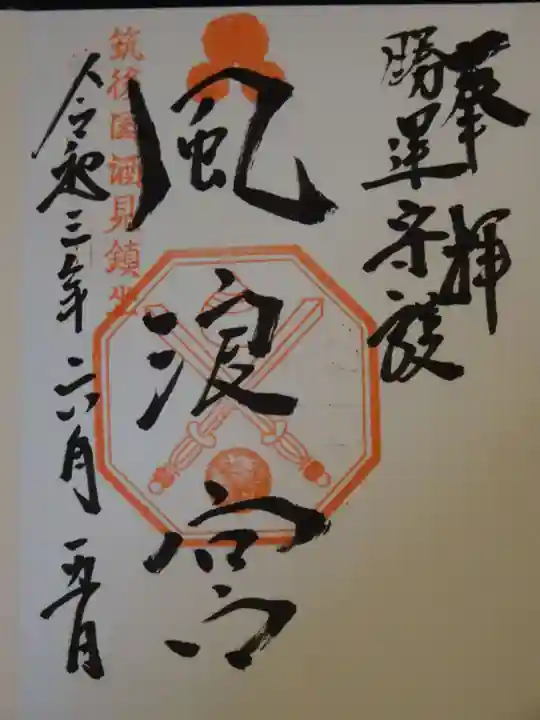 奉拝
勝運守護
風浪宮
筑後国酒見鎮坐
令和三年六月